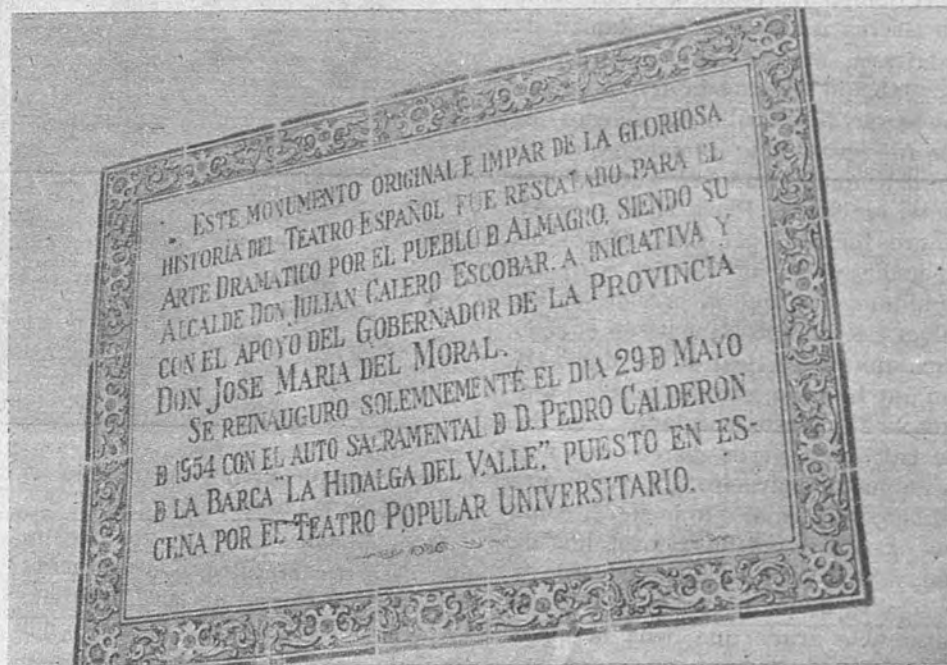 ESTE MONUMENTO ORIGINAL E IMPAR DE LA GLORIOSA
HISTORIA DEL TEATRO ESPAÑOL FUE RESCATADO PARA EL
ARTE DRAMATICO POR EL PUEBLO D ALMAGRO, SIENDO SU
ALCALDE DON JULIAN CALERO ESCOBAR. A INICIATIVA Y
CON EL APOYO DEL GOBERNADOR DE LA PROVINCIA
DON JOSE MARIA DEL MORAL.
SE REINAUGURO SOLEMNEMENTE EL DIA 29 D MAYO
D 1954 CON EL AUTO SACRAMENTAL D D. PEDRO CALDERON
D LA BARCA "LA HIDALGA DEL VALLE", PUESTO EN ES-
CENA POR EL TEATRO POPULAR UNIVERSITARIO.